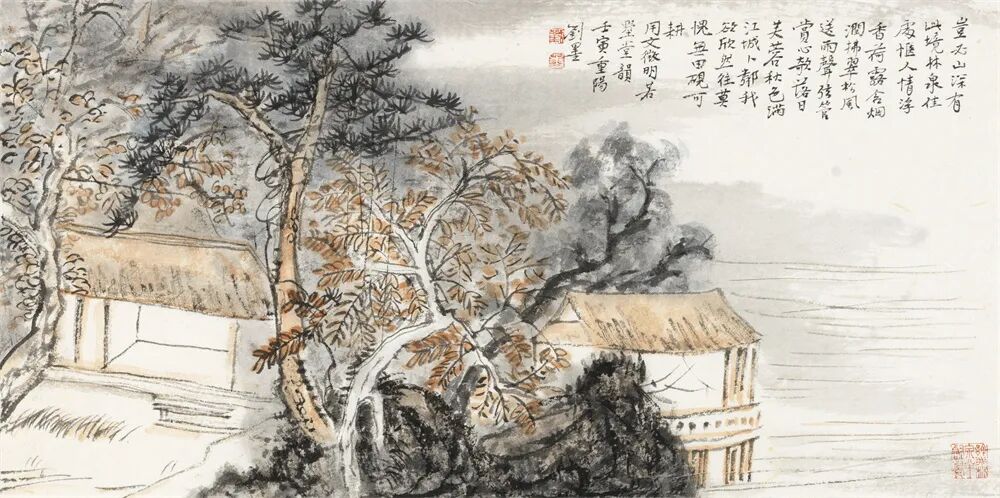 豈山深有
此境林泉佳
處愜人情浮
香荷露含烟
潤拂翠松風
送雨聲弦管
賞心歌落日
芙蓉秋色滿
江城卜鄰我
欲欣然往莫
愧無田硯可
耕
用文徵明若
墅堂韻
壬寅重陽
劉墨